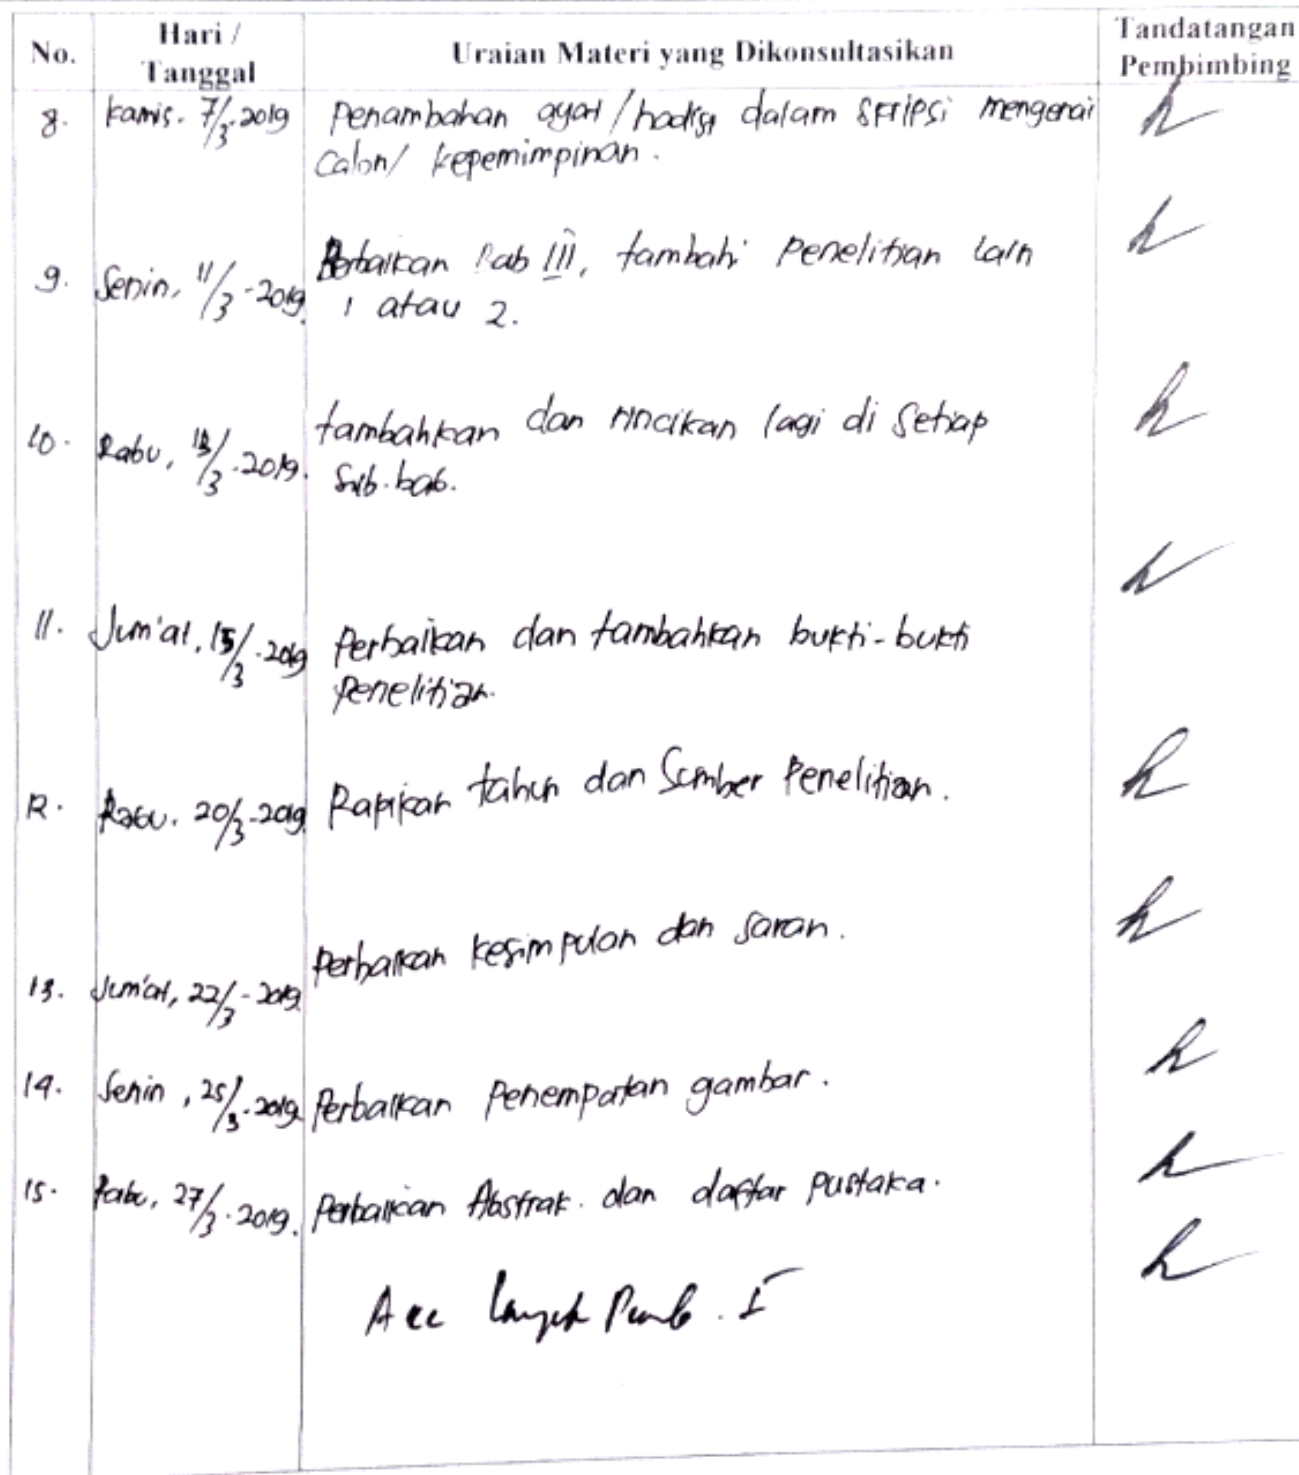 No. Hari / Tanggal Uraian Materi yang Dikonsultasikan Tandatangan Pembimbing
8. Kamis. 7/3.2019 Penambahan ayat/hadist dalam skripsi mengenai
calon/ kepemimpinan.
9. Senin, 11/3-2019. Perbaikan Bab III, tambah penelitian lain
1 atau 2.
10. Rabu, 13/3.2019. tambahkan dan rincikan lagi di setiap
sub.bab.
11. Jum'at, 15/3.2019 Perbaikan dan tambahkan bukti-bukti
Penelitian.
12. Rabu. 20/3-2019 Rapikan tahun dan Sumber Penelitian.
13. Jum'at, 22/3-2019 Perbaikan kesimpulan dan saran.
14. Senin, 25/3.2019 Perbaikan Penempatan gambar.
15. Rabu, 27/3.2019. Perbaikan Abstrak. dan daftar pustaka.
Acc Pemb. I